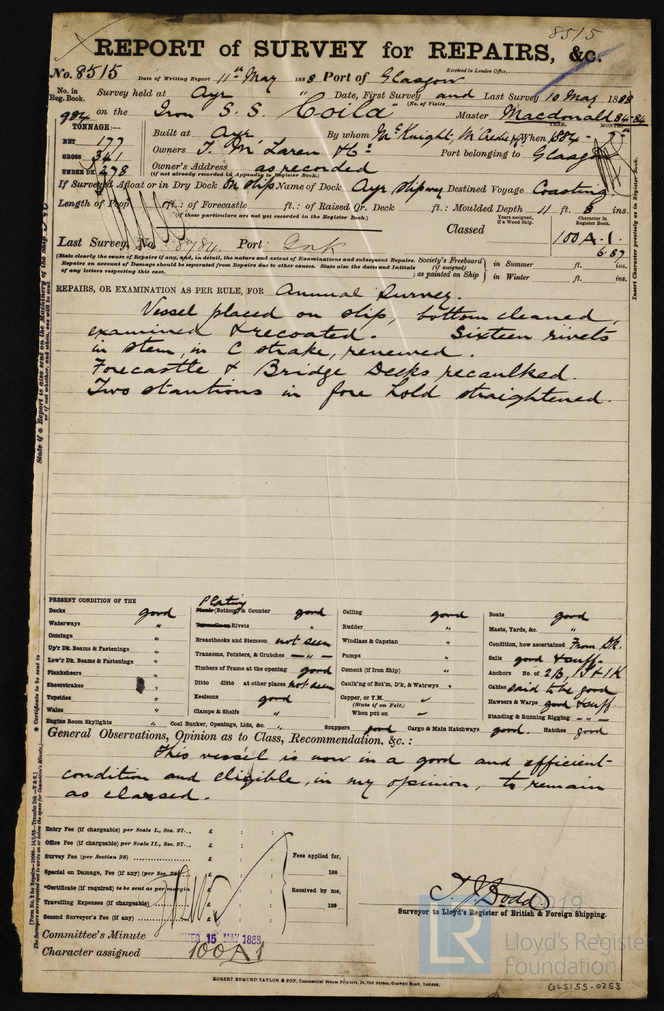 8515
REPORT of SURVEY for REPAIRS, &c.
No. 8515 Date of Writing Report 11th May 1888 Port of Glasgow Received in London Office,
No. in Reg. Book. Survey held at Ayr Date, First Survey and Last Survey 10 May 1888
(No. of Visits
984 on the Iron S.S. "Coila" Master Macdonald 84-86
TONNAGE:—
NET 177
GROSS 341
UNDER DK. 278
Built at Ayr By whom McKnight, McCredie When 1884
Owners T. McLaren & Co Port belonging to Glasgow
Owner's Address as recorded
(if not already recorded in Appendix to Register Book.)
If Surveyed Afloat or in Dry Dock On slip Name of Dock Ayr slipway Destined Voyage Coasting
Length of Poop ft.: of Forecastle ft.: of Raised Qr. Deck ft.: Moulded Depth 11 ft. 8 ins.
(if these particulars are not yet recorded in the Register Book.)
Classed
Years assigned, if a Wood Ship.
Character in Register Book.
100A.1.
6.87
Last Survey, No. Port
(State clearly the cause of Repairs if any, and, in detail, the nature and extent of Examinations and subsequent Repairs.
Repairs on account of Damage should be separated from Repairs due to other causes. State also the dates and Initials of any letters respecting this case.
Society's Freeboard (if assigned) as painted on Ship
in Summer ft. ins.
in Winter ft. ins.
REPAIRS, OR EXAMINATION AS PER RULE, FOR Annual Survey.
Vessel placed on slip, bottom cleaned,
examined & recoated. Sixteen rivets
in stem, in C strake, renewed.
Forecastle & Bridge Decks recaulked.
Two stantions in fore hold straightened.
PRESENT CONDITION OF THE
Decks good
Waterways "
Comings "
Up'r Dk. Beams & Fastenings "
Low'r Dk. Beams & Fastenings "
Planksheers "
Sheerstrakes "
Topsides "
Wales "
Engine Room Skylights "
Plating (Bottom) & Counter good
Rivets "
Breasthooks and Stemson not seen
Transoms, Pointers, & Crutches — " —
Timbers of Frame at the opening good
Ditto ditto at other places not seen
Keelsons good
Clamps & Shelfs "
Coal Bunker, Openings, Lids, &c. "
Ceiling good
Rudder "
Windlass & Capstan "
Pumps "
Cement (if Iron Ship) "
Caulk'ng of Bot'm, D'k, & Watrwys "
Copper, or Y.M. "
(State if on Felt.)
When put on "
Scuppers good Cargo & Main Hatchways good. Hatches good
Boats good
Masts, Yards, &c. "
Condition, how ascertained From Dk.
Sails good & suff.
Anchors No. of 2B, 1S & 1K
Cables said to be good
Hawsers & Warps good & suff
Standing & Running Rigging — " —
General Observations, Opinion as to Class, Recommendation, &c.:
This vessel is now in a good and efficient
condition and eligible, in my opinion, to remain
as classed.
Entry Fee (if chargeable) per Scale I., Sec. 27... £ : :
Office Fee (if chargeable) per Scale II., Sec. 27... £ : :
Survey Fee (per Section 28) £ : :
Special on Damage, Fee (if any) (per Sec. 28) £ : :
*Certificate (if required) to be sent as per margin
Travelling Expenses (if chargeable) £ : :
Second Surveyor's Fee (if any) £ : :
Fees applied for, 188
Received by me, 188
T. J. Dodd
Surveyor to Lloyd's Register of British & Foreign Shipping.
Committee's Minute TUES 15 MAY 1888
Character assigned 100A1
ROBERT EDMUND TAYLOR & SON, Commercial Steam Printers, 19, Old Street, Goswell Road, London.
State if a Report is also sent on the Machinery of the Ship
or if not whether, and when, one will be sent.
Insert Character precisely as in Register Book.
* Certificate to be sent to
LR
2019
Lloyd's Register
Foundation
GLS155-0253